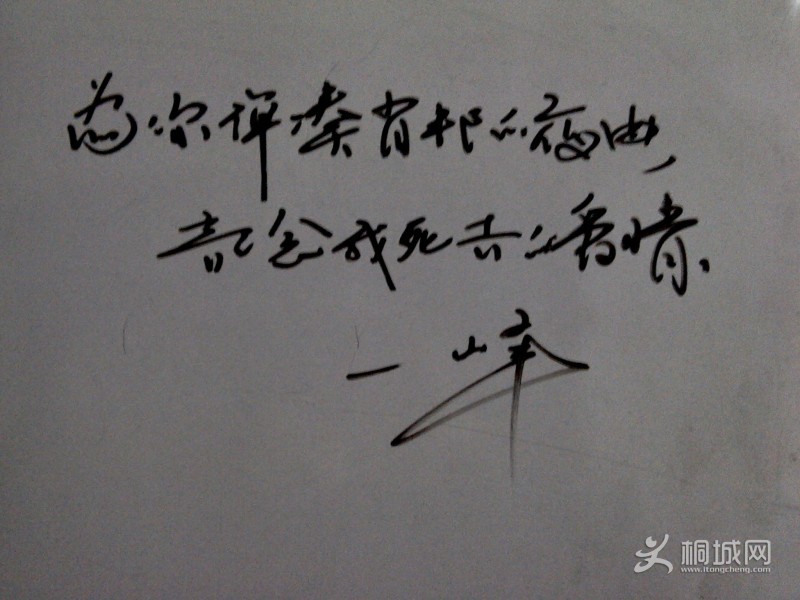 为你弹奏肖邦的夜曲,
記念我死去的爱情.
一峰
桐城网
www.itongcheng.com